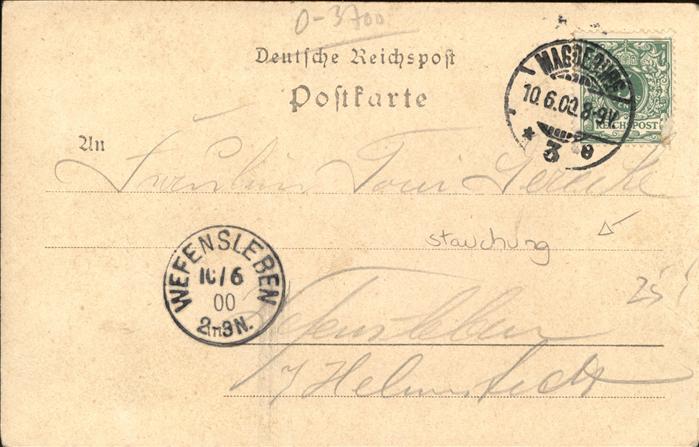 0-3700
Deutsche Reichspost
Postkarte
MAGDEBURG
10.6.00.8-9V.
* 3 e
REICHSPOST
An
Fräulein Toni
stauchung
WEFENSLEBEN
10/6
00
2-3N.
25
Wefensleben
b/Helmstedt